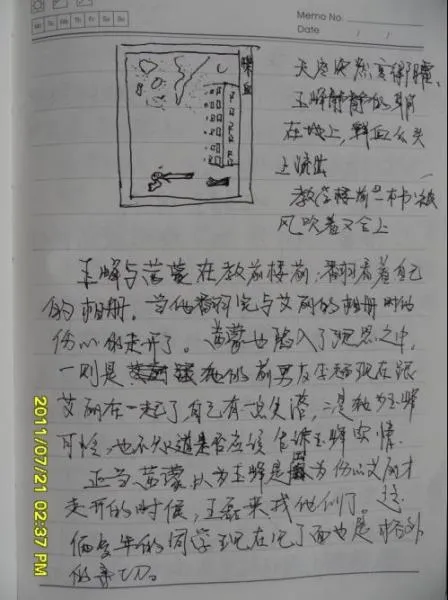 Memo No.
Mo Tu We Th Fr Sa Su
Date / /
天空突然变得阴暗,
王峰静静的躺
在地上,鲜血从头
上流出
教学楼前一本书被
风吹着又合上
王峰与苗蒙在教学楼前,翻看着自己
的相册。当他翻到完与艾丽的相册时
伤心的走开了。苗蒙也陷入了沉思之中,
一则是 她的前男友 现在跟
艾丽在一起了自己有些失落,二是她为王峰
可怜,也不知道是否应该告诉王峰实情.
正当苗蒙认为王峰是因为伤心艾丽才
走开的时候,王磊来找他们了。这
俩 年的同学现在见了面也是格外
的亲切。
2011/07/21 02:37 PM